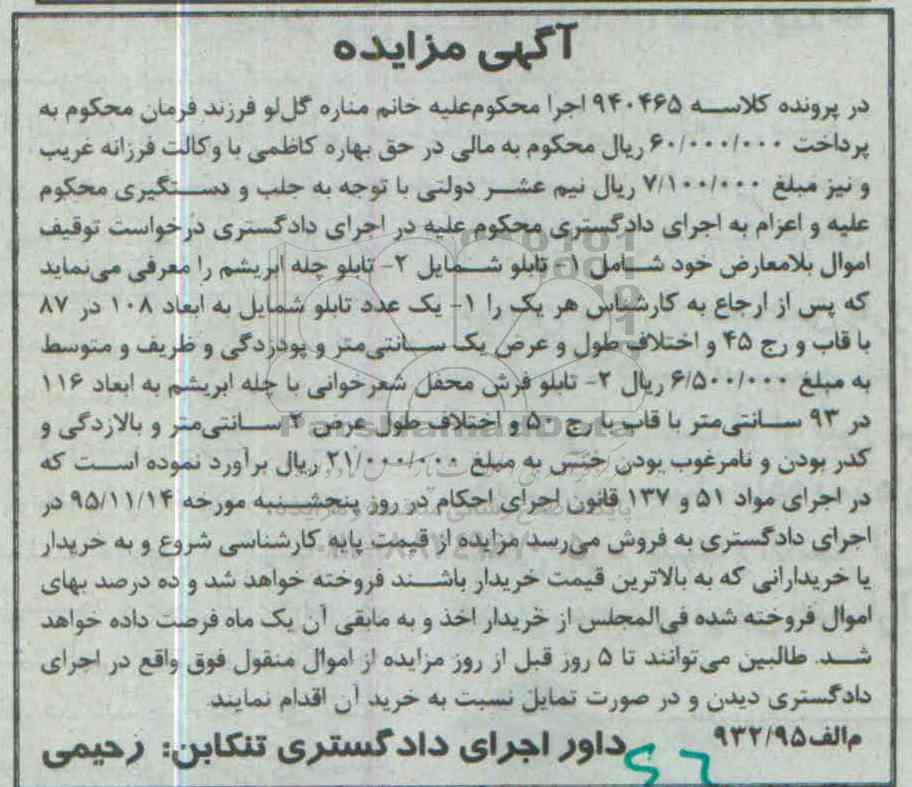 آگهی مزایده
در پرونده کلاسه ۹۴۰۴۶۵ اجرا محکوم‌علیه خانم مناره گل‌لو فرزند فرمان محکوم به
پرداخت ۶۰/۰۰۰/۰۰۰ ریال محکوم به مالی در حق بهاره کاظمی با وکالت فرزانه غریب
و نیز مبلغ ۷/۱۰۰/۰۰۰ ریال نیم عشر دولتی با توجه به جلب و دستگیری محکوم
علیه و اعزام به اجرای دادگستری محکوم علیه در اجرای دادگستری درخواست توقیف
اموال بلامعارض خود شامل ۱- تابلو شمایل ۲- تابلو چله ابریشم را معرفی می‌نماید
که پس از ارجاع به کارشناس هر یک را ۱- یک عدد تابلو شمایل به ابعاد ۱۰۸ در ۸۷
با قاب و رج ۴۵ و اختلاف طول و عرض یک سانتی‌متر و پودزدگی و ظریف و متوسط
به مبلغ ۶/۵۰۰/۰۰۰ ریال ۲- تابلو فرش محفل شعرخوانی با چله ابریشم به ابعاد ۱۱۶
در ۹۳ سانتی‌متر با قاب با رج ۵۰ و اختلاف طول عرض ۲ سانتی‌متر و بالازدگی و
کدر بودن و نامرغوب بودن جنس به مبلغ ۲۱/۰۰۰/۰۰۰ ریال برآورد نموده است که
در اجرای مواد ۵۱ و ۱۳۷ قانون اجرای احکام در روز پنجشنبه مورخه ۹۵/۱۱/۱۴ در
اجرای دادگستری به فروش می‌رسد مزایده از قیمت پایه کارشناسی شروع و به خریدار
یا خریدارانی که به بالاترین قیمت خریدار باشند فروخته خواهد شد و ده درصد بهای
اموال فروخته شده فی‌المجلس از خریدار اخذ و به مابقی آن یک ماه فرصت داده خواهد
شد. طالبین می‌توانند تا ۵ روز قبل از روز مزایده از اموال منقول فوق واقع در اجرای
دادگستری دیدن و در صورت تمایل نسبت به خرید آن اقدام نمایند.
م‌الف۹۳۲/۹۵
داور اجرای دادگستری تنکابن: رحیمی
ParsNamadData